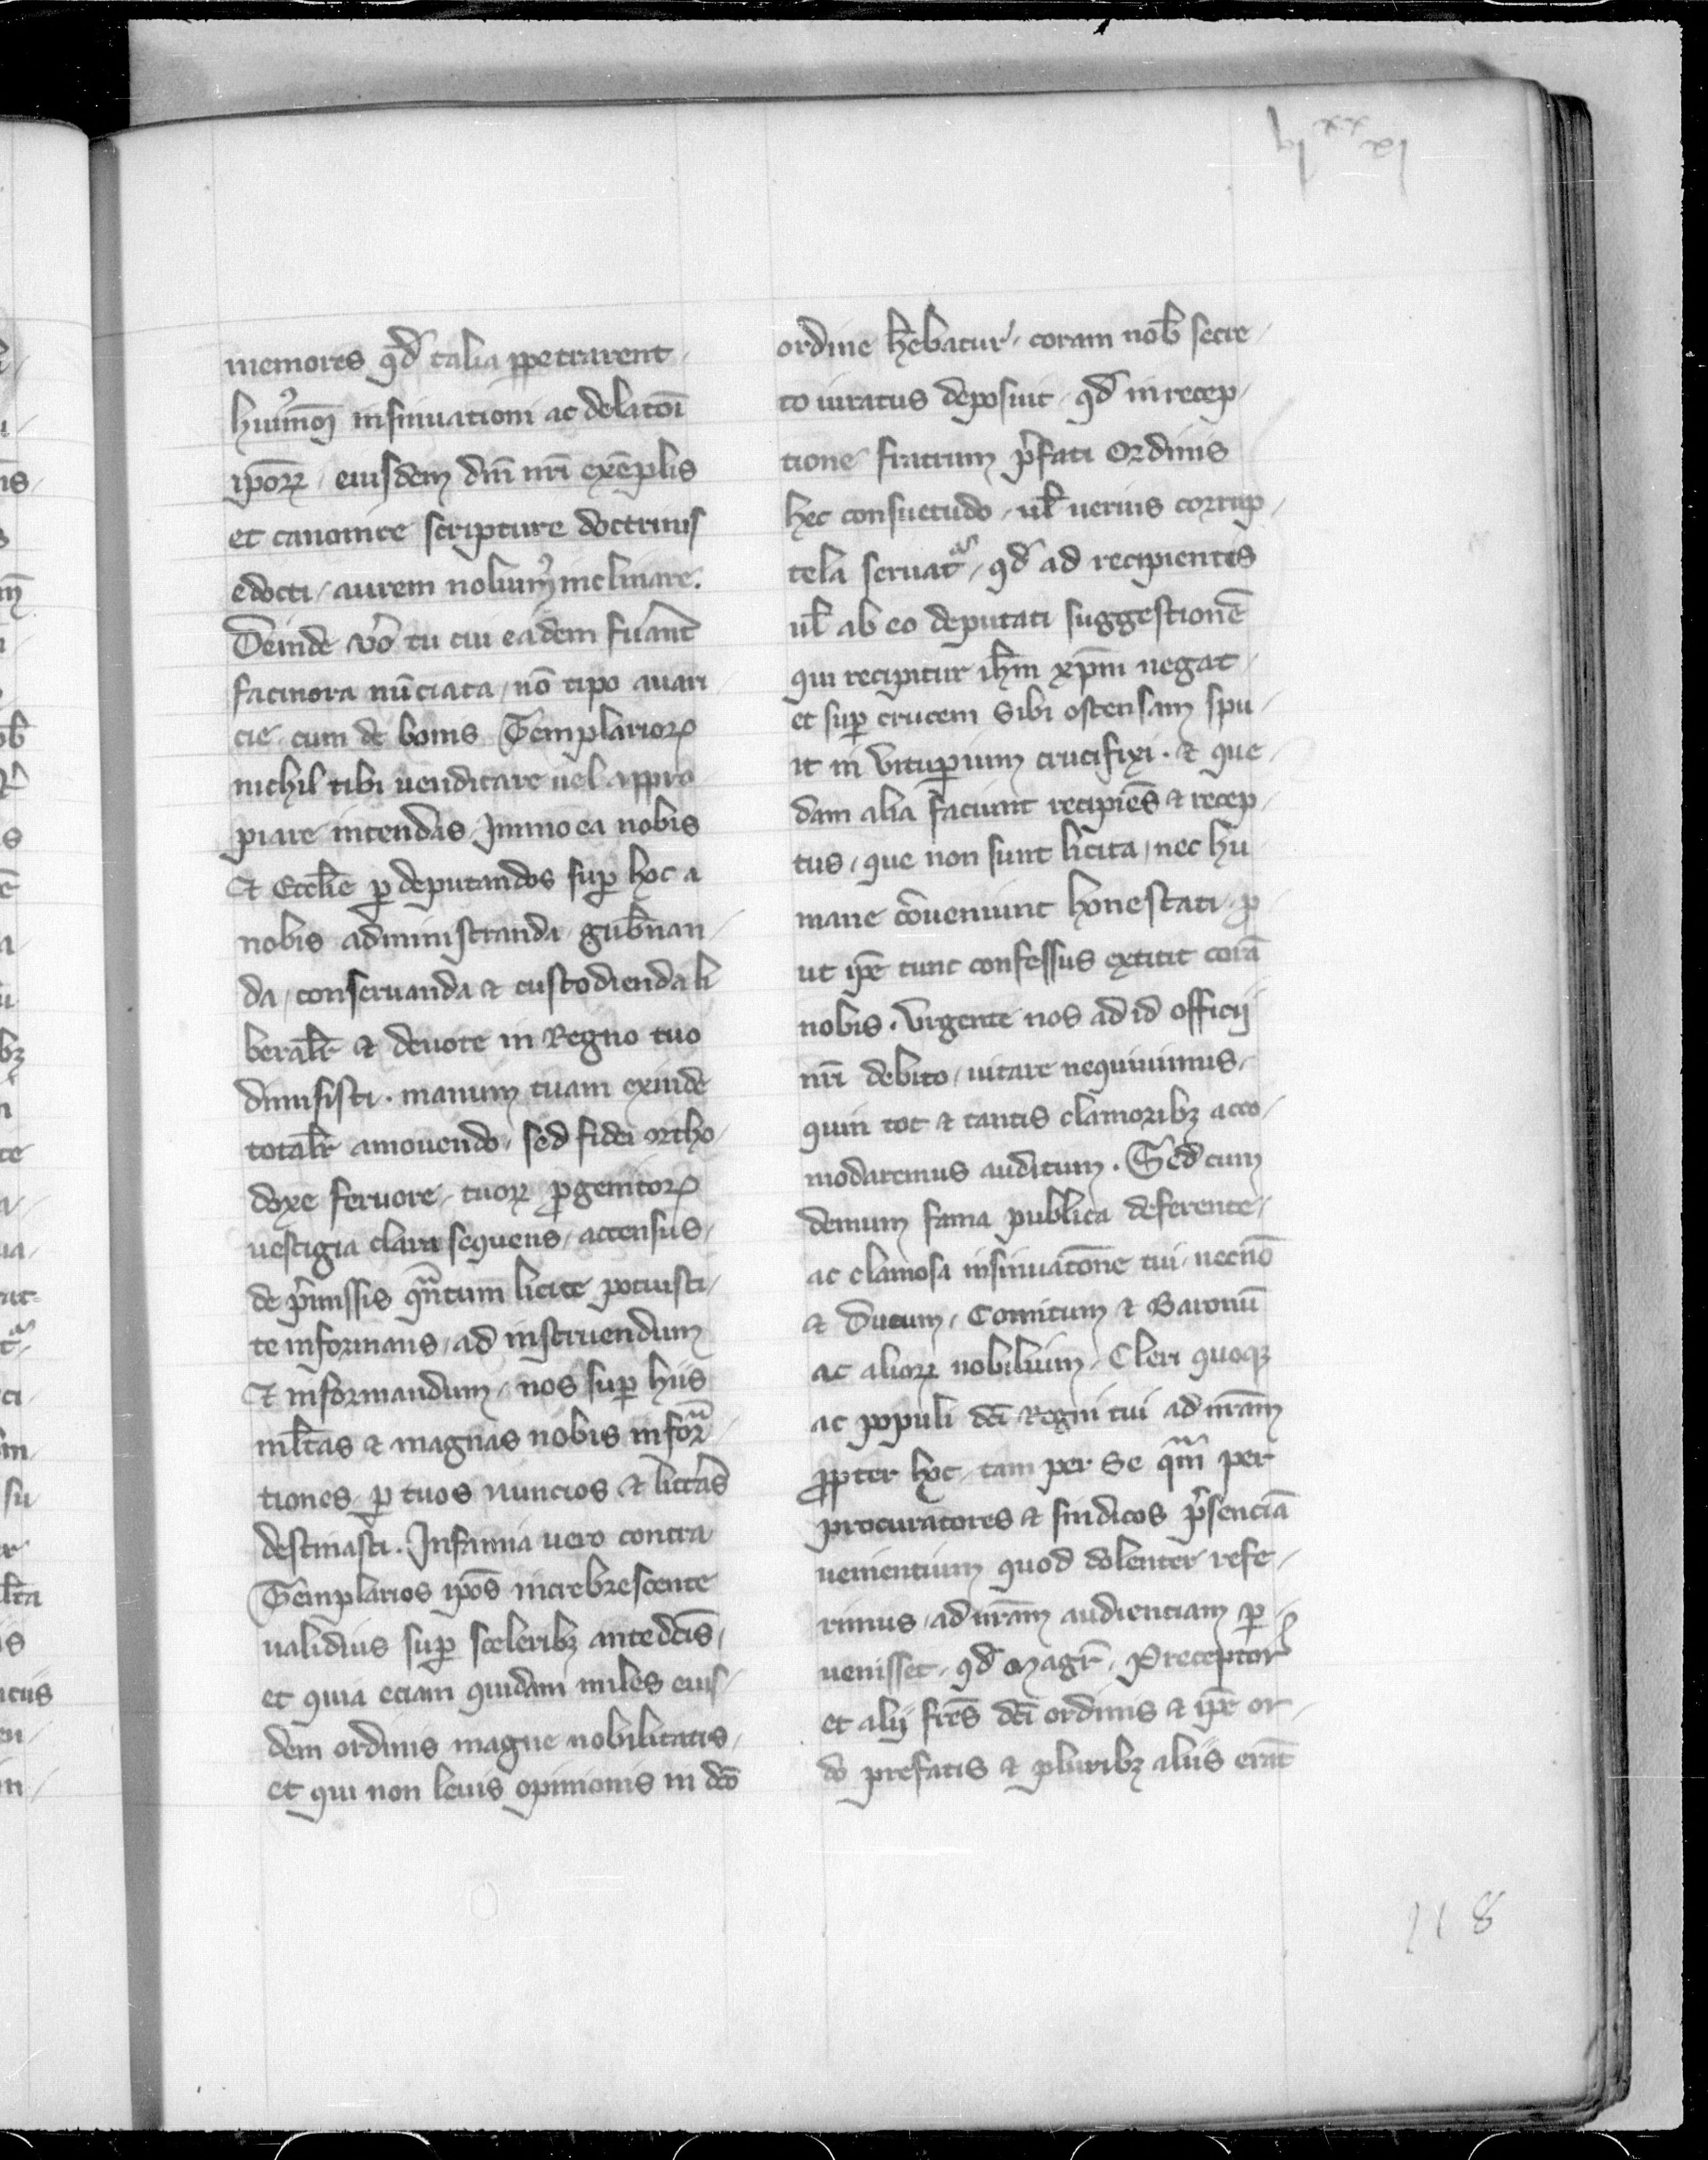 vjxxxj
memores qd̄ talia ppetrarent
huiꝰmōi insinuationi ac delatōi
ip̄oꝝ / eiusdem dn̄i nr̄i exēplis
et canonice scripture doctrinis
edocti / aurem noluimꝰ inclinare.
Deinde vo tu cui eadem fuant
facinora nūciata / nō tipo auari
cie cum de bonis Templarioꝝ
nichil tibi uendicare uel appro
piare intendas / Immo ea nobis
Et Eccl̄ie ꝑ deputandos suꝑ hoc a
nobis administranda / gub̄nan /
da / conseruanda & custodienda li
beralr̄ & deuote in Regno tuo
dimisisti . manum tuam exinde
totalr̄ amouendo / sed fidei ortho
doxe feruore / tuoꝝ ꝓgenitoꝝ
uestigia clara sequens / accensus /
de p̄missis qn̄tum licite potuisti /
te informans / ad instruendum
Et informandum / nos suꝑ hiis
ml̄tas & magnas nobis inforᵃ
tiones ꝑ tuos nuncios & litt̄as
destinasti . Infamia uero contra
Templarios ip̄os increbrescente
ualidius suꝑ sceleribꝫ antedc̄is /
et quia eciam quidam miles eius /
dem ordinis magne nobilitatis /
et qui non leuis opinionis in dc̄o
ordine hēbatur / coram nob̄ secre /
to iuratus deposuit / qd̄ in recep /
tione fratrum p̄fati Ordinis
hec consuetudo / ul̄ uerius corrup /
tela seruat᷑ / qd̄ ad recipientis
ul̄ ab eo deputati suggestionē
qui recipitur ih̄m xp̄m negat /
et suꝑ crucem sibi ostensam spu /
it in vituꝑium crucifixi . & que /
dam alia faciunt recipiēs & recep /
tus / que non sunt licita / nec hu
mane cōueniunt honestati / ꝓ
ut ip̄e tunc confessus extitit corā
nobis . vrgente nos ad id officij
nr̄i debito / uitare nequiuimus /
quin tot & tantis clamoribꝫ acco /
modaremus auditum . Sed cum
demum fama publica deferente /
ac clamosa insinuatōne tui / necnō
& Ducum / Comitum & Baronū
ac alioꝝ nobilium / Cleri quoqꝫ
ac populi dc̄i Regni tui ad nr̄am
ꝓpter hoc / tam per se qm̄ per
procuratores & sindicos p̄senciā
uenientium quod dolenter refe /
rimus / ad nr̄am audienciam ꝑ /
uenisset / qd̄ magr̄ / Preceptor
et alij fr̄es dc̄i ordinis & ip̄e or /
do prefatis & pluribꝫ aliis erāt
118